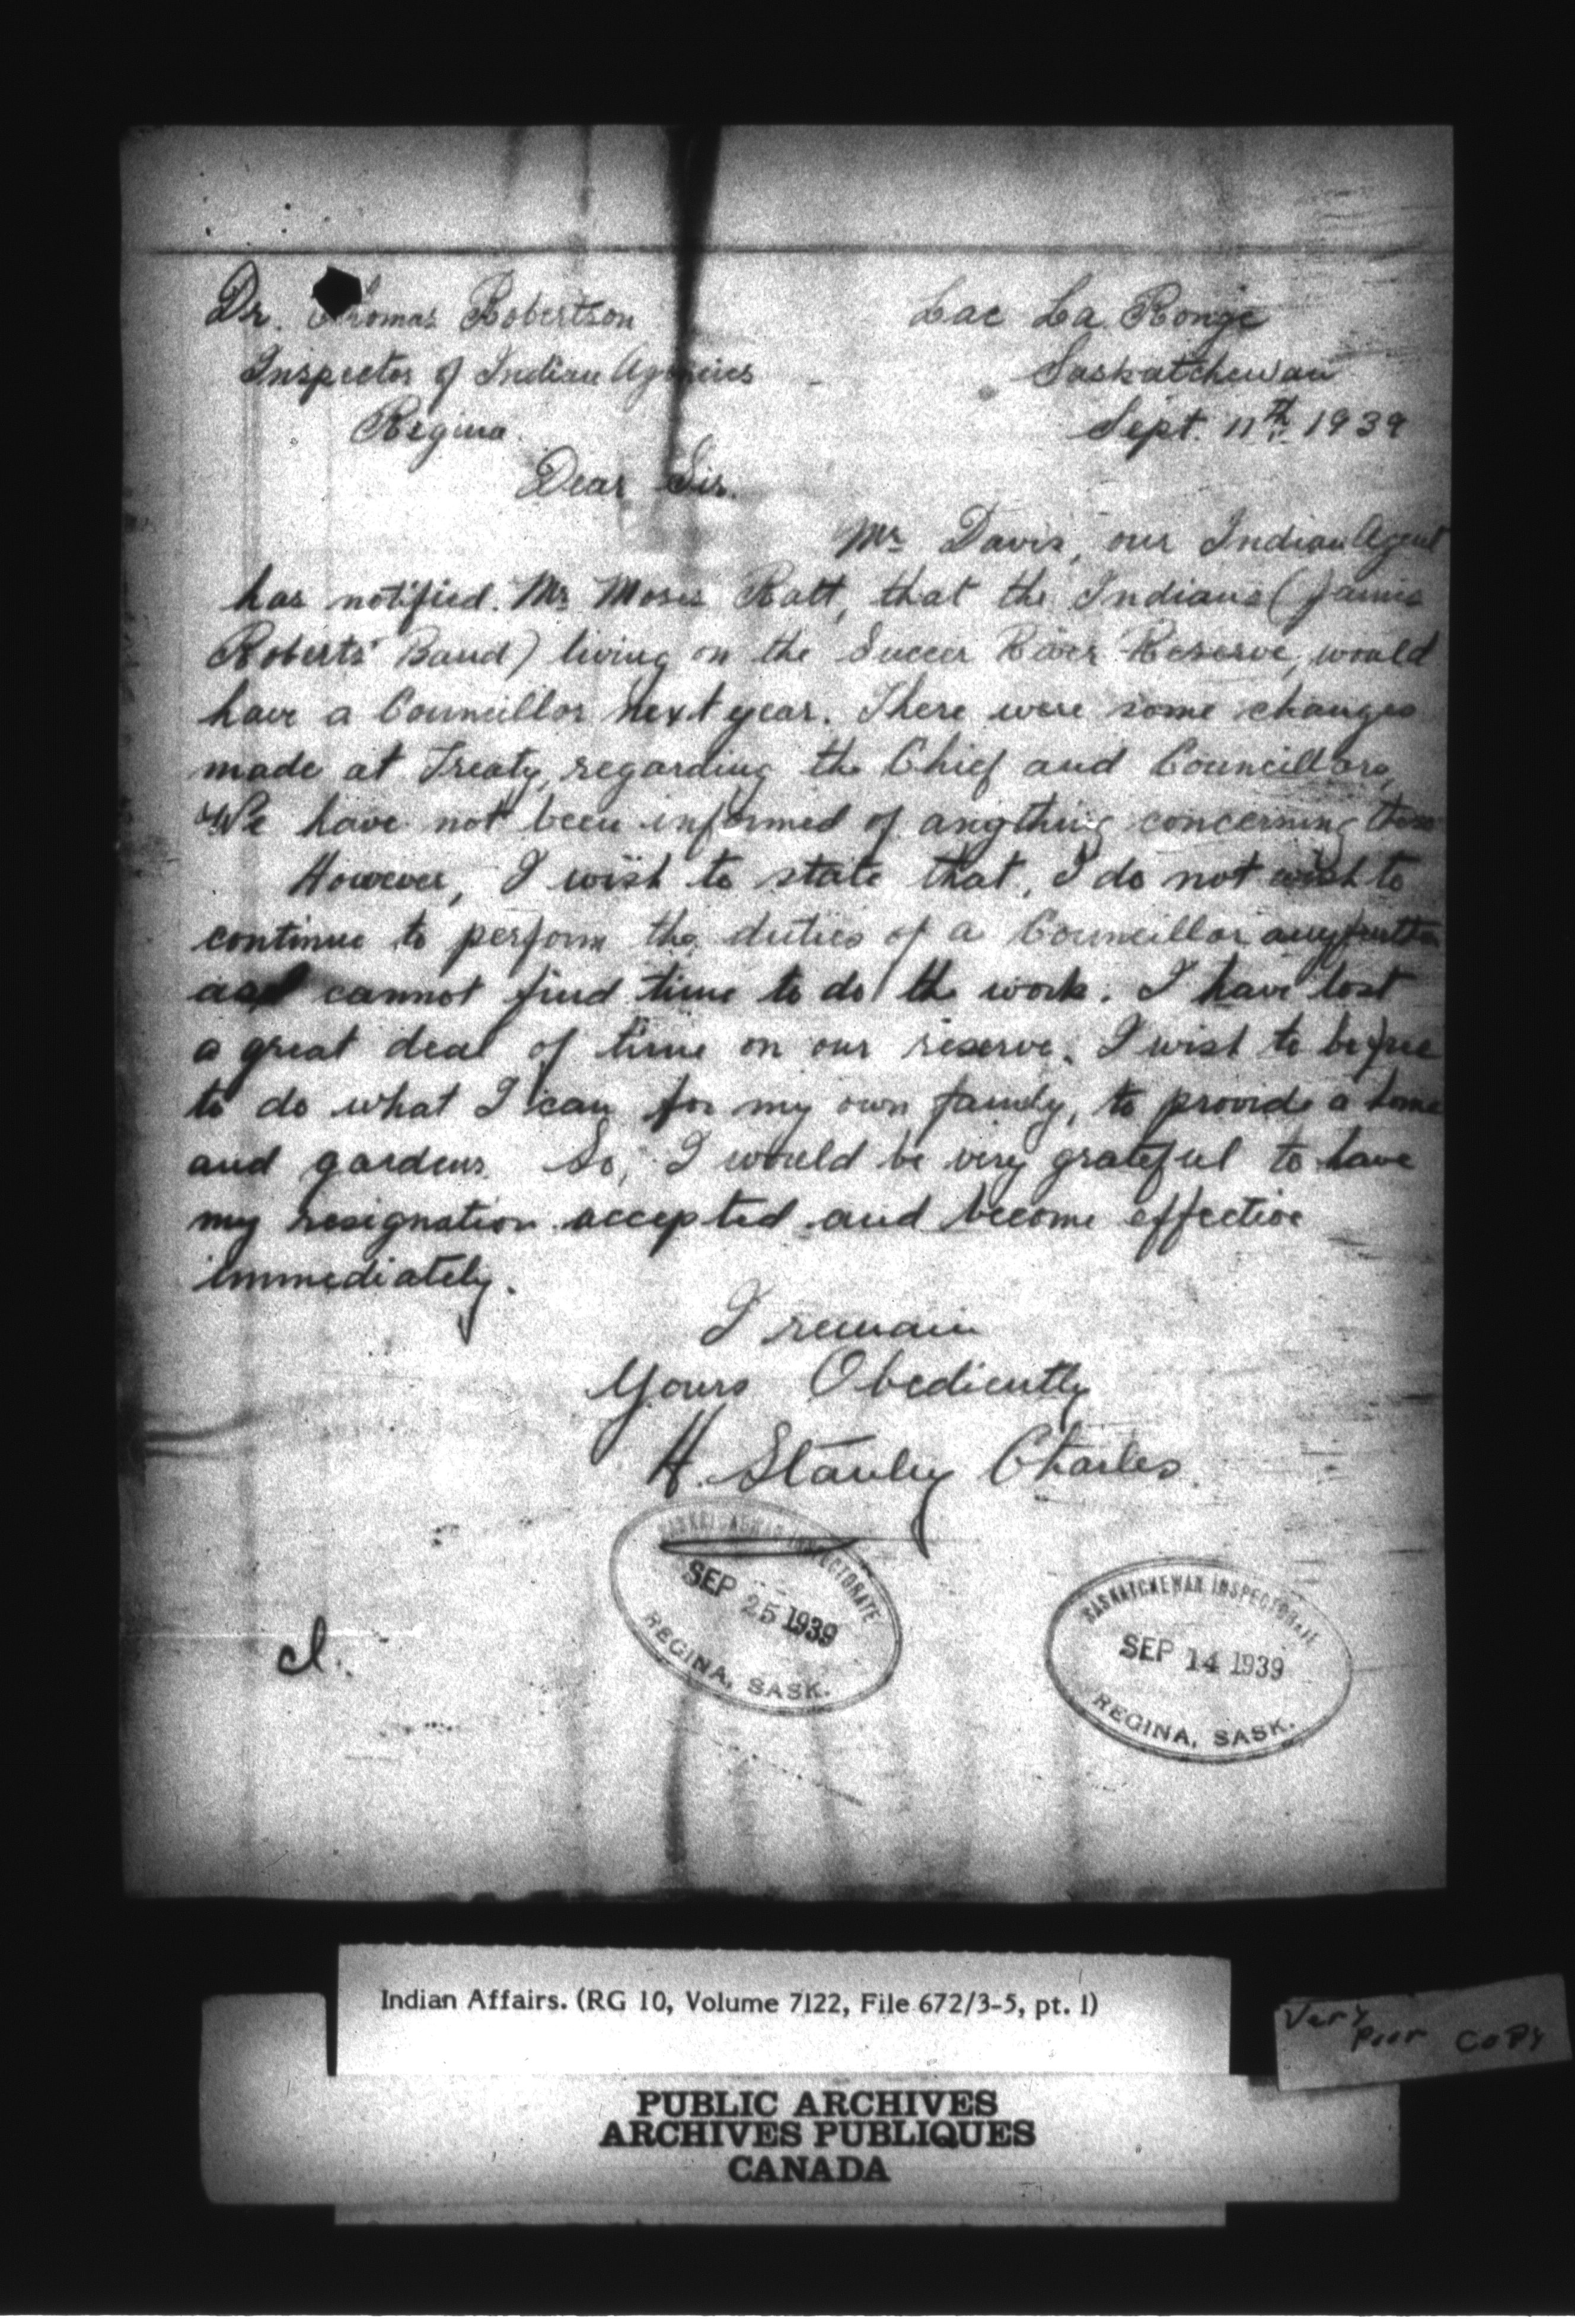 Dr. Thomas Robertson
Inspector of Indian Agencies
Regina.
Lac La Ronge
Saskatchewan
Sept. 11th 1939
Dear Sir.
Mr Davis, our Indian Agent
has notified Mr Moses Ratt, that the Indians (James
Roberts' Band) living on the Succer River Reserve, would
have a Councillor next year. There were some changes
made at Treaty, regarding the Chief and Councillors,
We have not been informed of anything concerning these
However, I wish to state that, I do not wish to
continue to perform the duties of a Councillor any further
as I cannot find time to do the work. I have lost
a great deal of time on our reserve. I wish to be free
to do what I can for my own family, to provide a home
and gardens. So, I would be very grateful to have
my resignation accepted and become effective
immediately.
I remain
Yours Obediently
H. Stanley Charles
SASKATCHEWAN INSPECTORATE
SEP 25 1939
REGINA, SASK.
SASKATCHEWAN INSPECTORATE
SEP 14 1939
REGINA, SASK.
Indian Affairs. (RG 10, Volume 7122, File 672/3-5, pt. 1)
Very
Poor Copy
PUBLIC ARCHIVES
ARCHIVES PUBLIQUES
CANADA